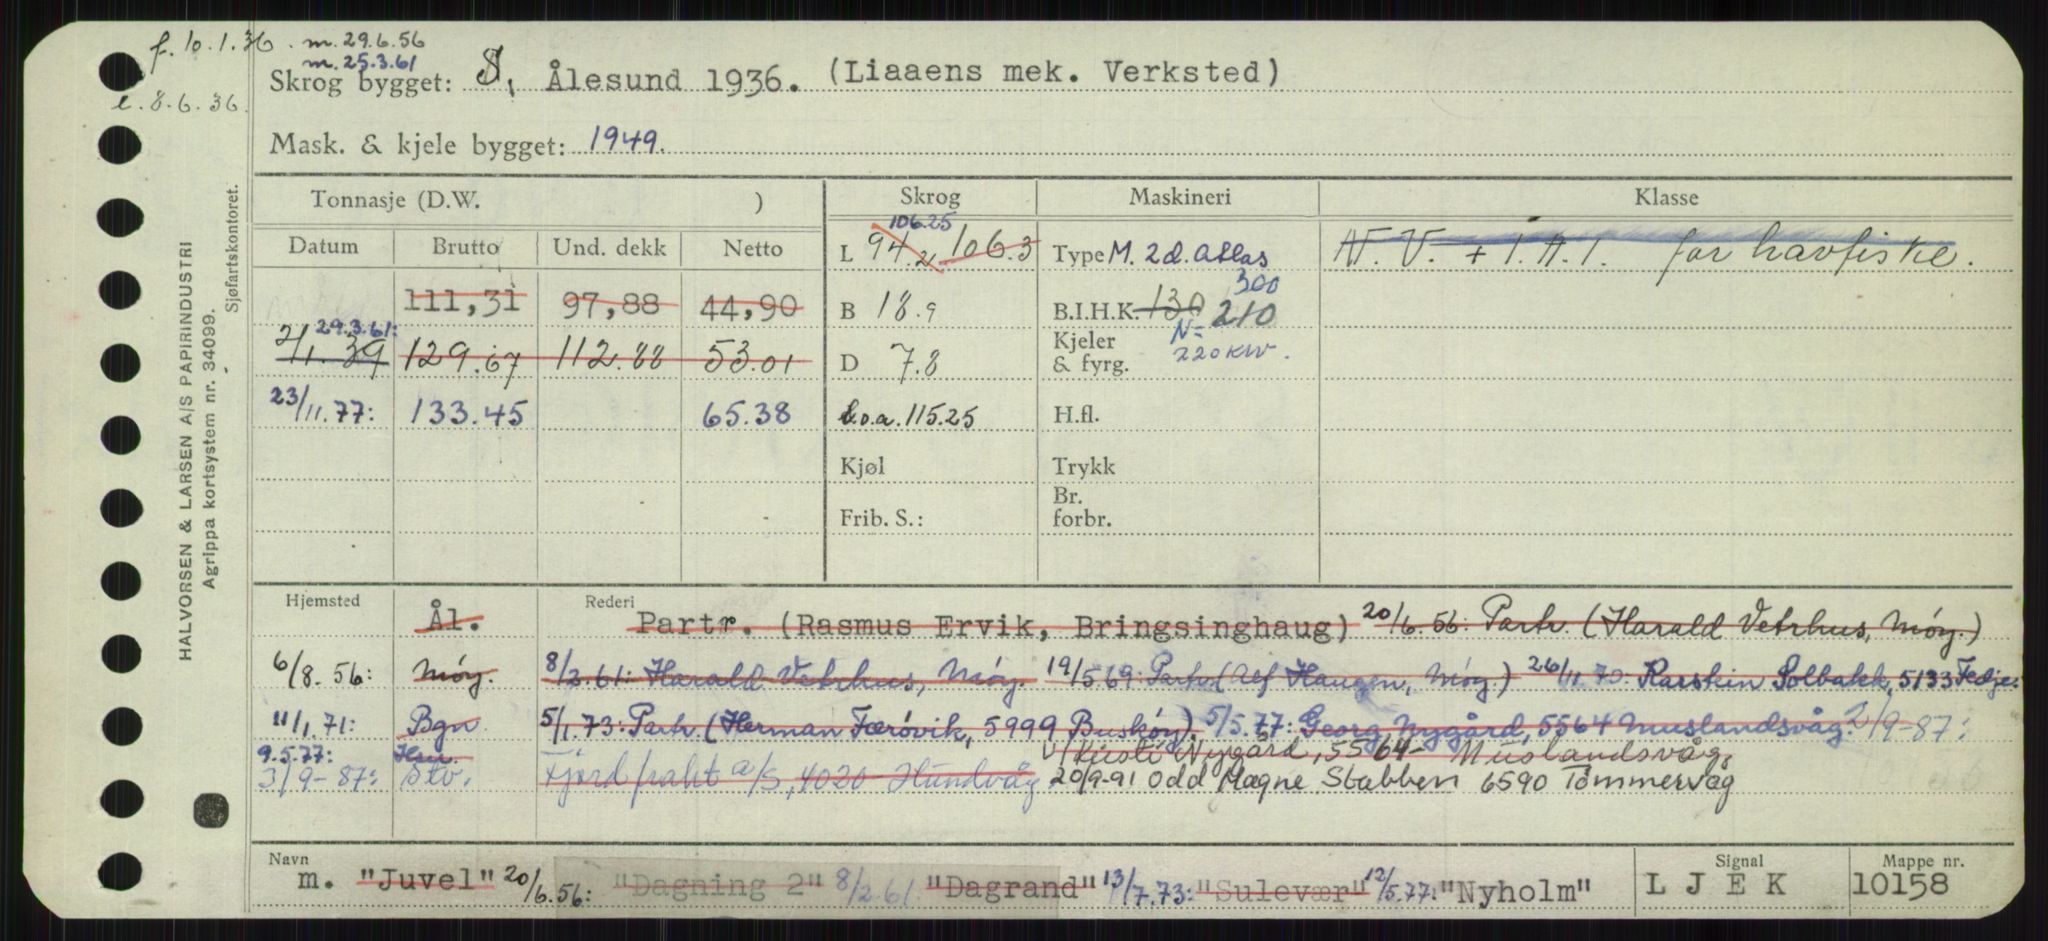 f. 10.1.36. m. 29.6.56
m. 25.3.61
Skrog bygget: S, Ålesund 1936. (Liaaens mek. Verksted)
l. 8.6.36.
Mask. & kjele bygget: 1949.
HALVORSEN & LARSEN A/S PAPIRINDUSTRI
Agrippa kortsystem nr. 34099.
Sjøfartskontoret.
Tonnasje (D.W. ) Skrog Maskineri Klasse
Datum Brutto Und. dekk Netto
L 94.2 106.3 106.25 Type M. 2 d. Atlas N.V. + 1.A.1. for havfiske.
111,31 97,88 44,90 B 18.9 B.I.H.K. 130 210 300
2/1.39 29.3.61: 129.67 112.88 53.01 D 7.8 Kjeler & fyrg. N= 220 KW.
23/11.77: 133.45 65.38 L.o.a. 115.25 H.fl.
Kjøl Trykk
Frib. S.: Br. forbr.
Hjemsted Ål. Rederi Partr. (Rasmus Ervik, Bringsinghaug) 20/6.56: Partr. (Harald Vetrhus, Móy.)
6/8.56: Móy. 8/2.61: Harald Vetrhus, Móy. 19/5.69: Partr. (Alf Haugen, Móy.) 26/11.70: Karstein Solbakk, 5133 Fedje.
11/1.71: Bgn. 5/1.73: Partr. (Herman Færóvik, 5999 Buskóy). 5/5.77: Georg Nygård, 5564 Muslandsvåg. 2/9-87:
9.5.77: Hsu. v/Kusti Nygård, 5564 Muslandsvåg,
3/9-87: Stv. Fjordfrakt a/s, 4020 Hundvåg 20/9-91 Odd Magne Stabben 6590 Tømmervåg
Navn Signal Mappe nr.
m. "Juvel" 20/6.56: "Dagning 2" 8/2.61. "Dagrand" 13/7.73: "Sulevær" 12/5.77: "Nyholm" L J E K 10158